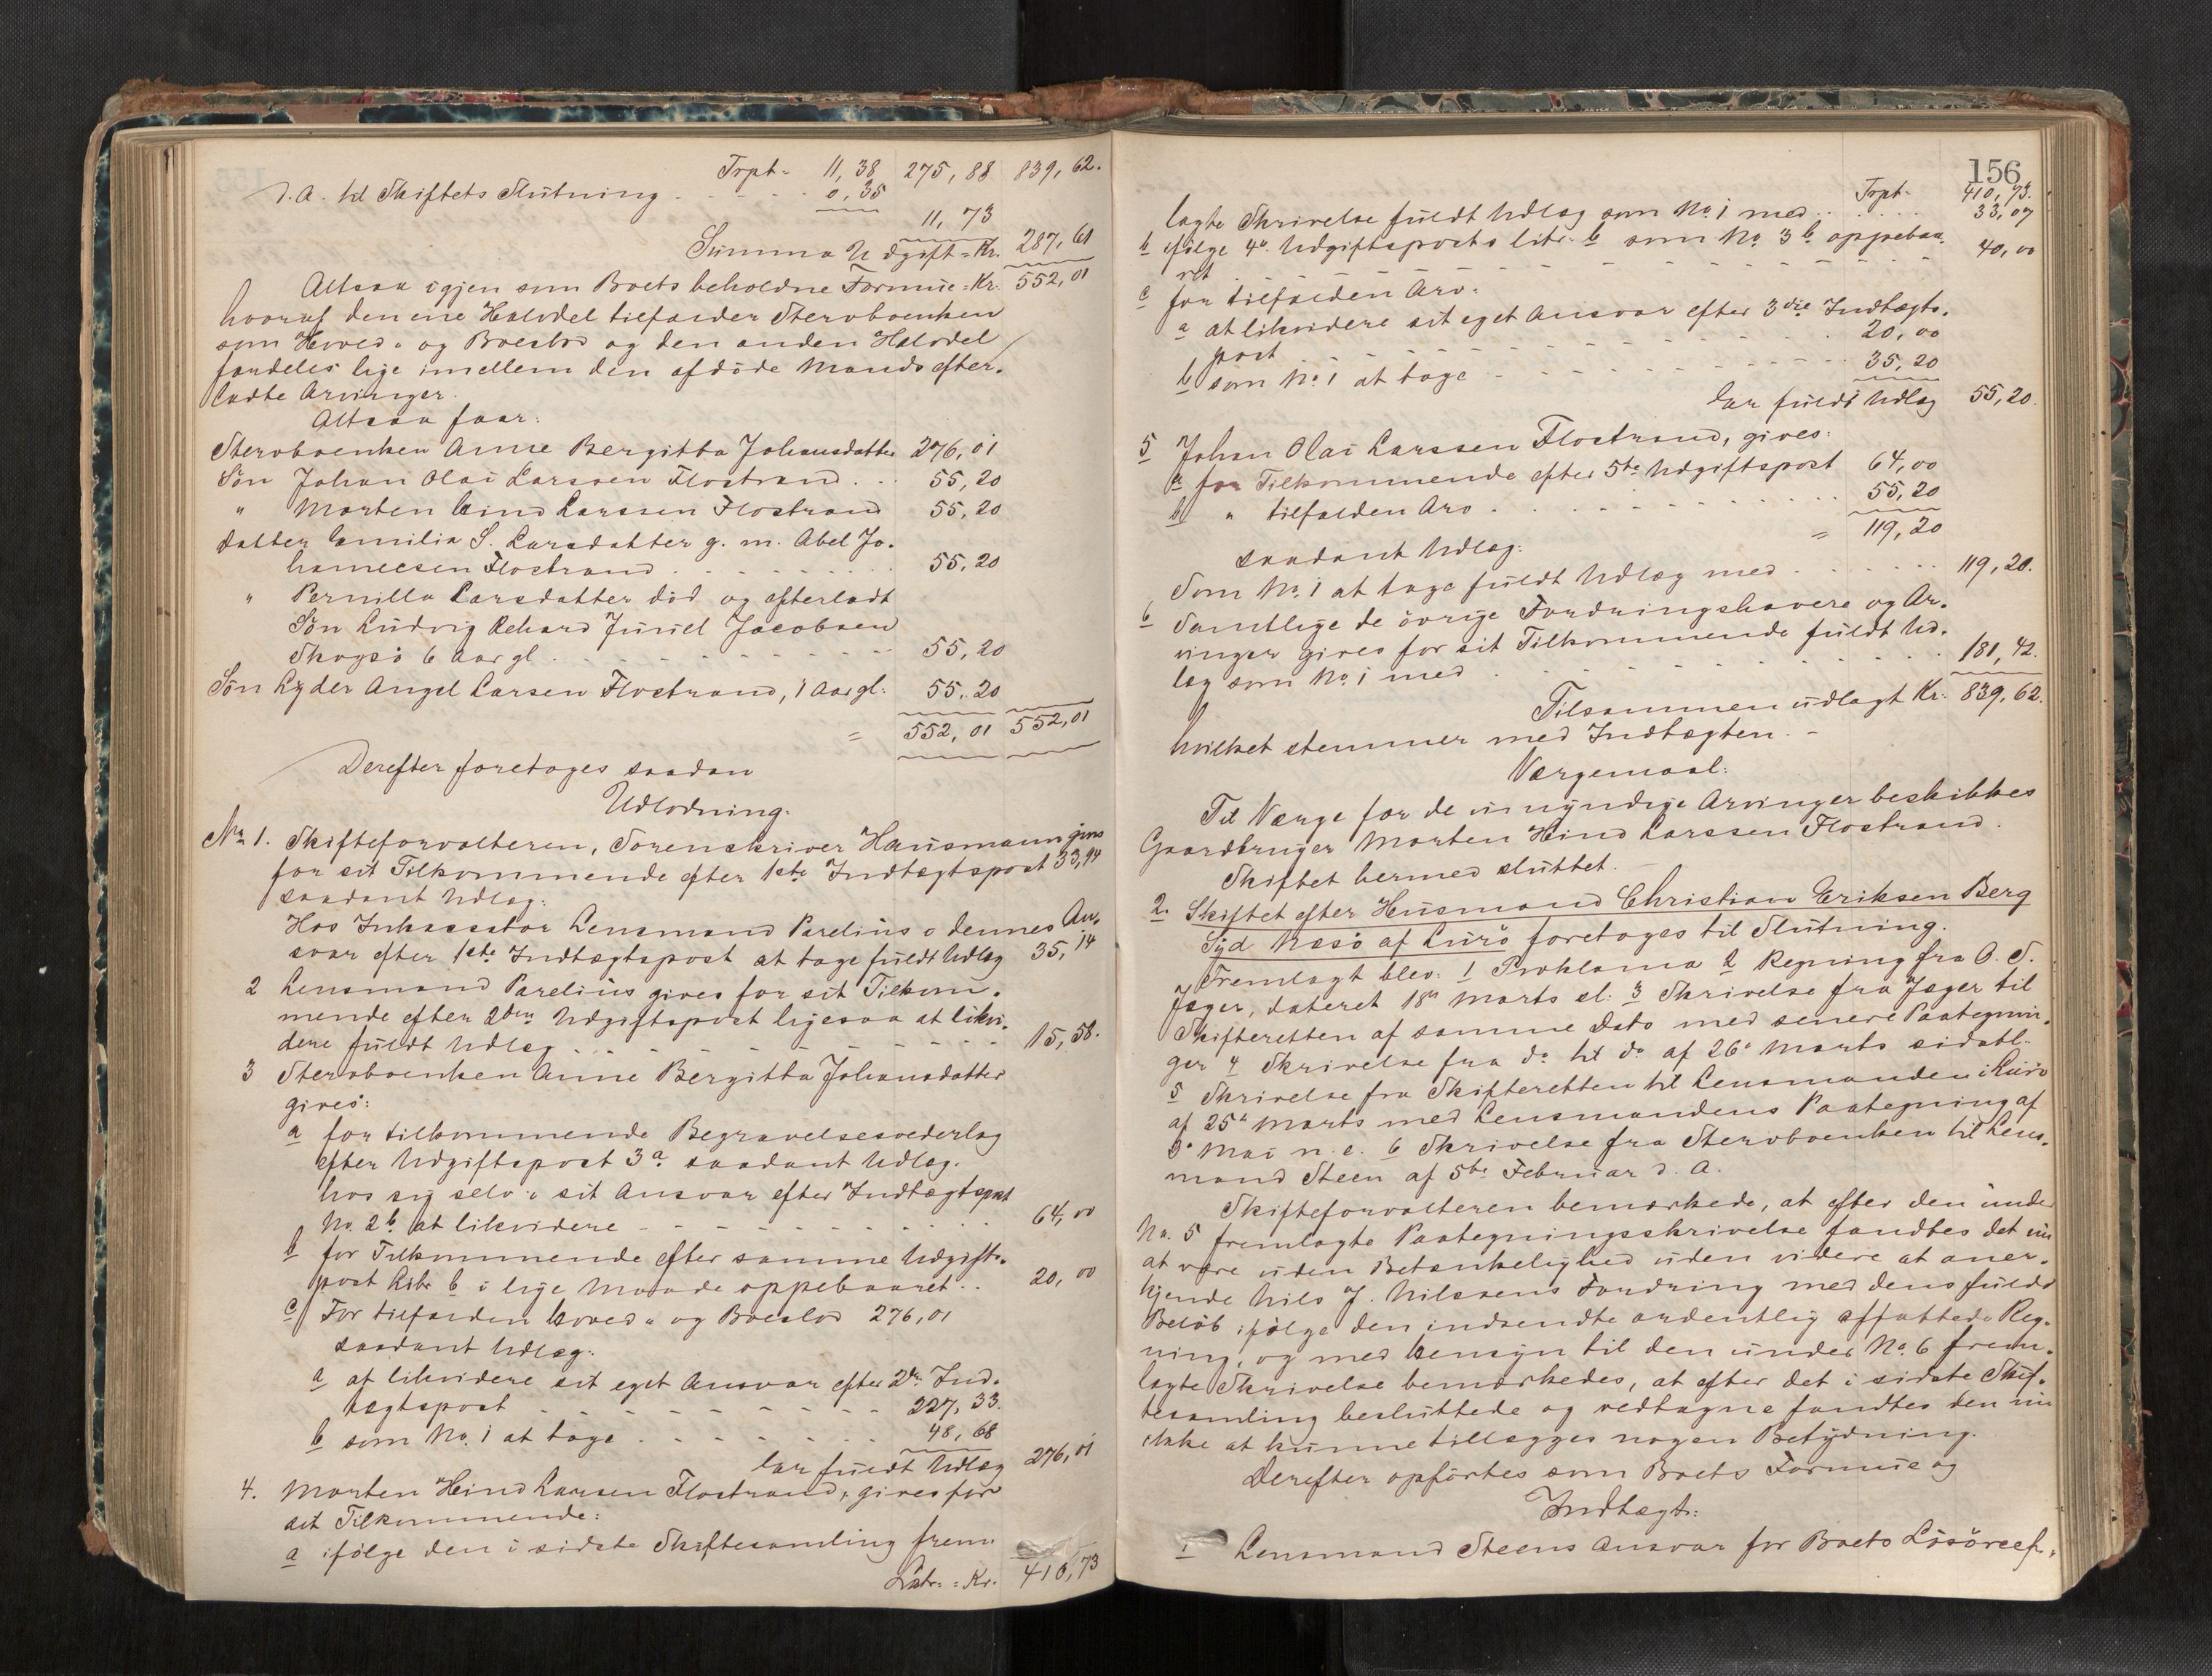 Trpt. 11,38 275,88 839,62.
d. A. til Skiftets Slutning . . . . 0,35
11,73
Summa Udgift = Kr. 287,61
Altsaa igjen som Boets beholdne Formue = Kr. 552,01
hvoraf den ene Halvdel tilfalder Stervboenken
som Hoved- og Boeslod og den anden Halvdel
fordeles lige imellem den afdøde Mands efter-
ladte Arvinger.
Altsaa faar:
Stervboenken Anne Bergitta Johansdatter 276,01
Søn Johan Olai Larssen Flostrand . . 55,20
" Morten Hind Larssen Flostrand 55,20
datter Emilia S. Larsdatter g. m. Abel Jo-
hannessen Flostrand . . . . . . 55,20
" Pernilla Larsdatter død og efterladt
Søn Ludvig Rehard Juuel Jacobsen
Skogsø 6 Aar gl. . . . . . . 55,20
Søn Lyder Angel Larsen Flostrand, 1 Aar gl: 55,20
= 552,01 552,01
Derefter foretages saadan
Udlodning.
No 1. Skifteforvalteren, Sorenskriver Hausmann gives
for sit Tilkommende efter 1ste Indtægtspost 33,94
saadant Udlæg:
Hos Inkassator Lensmand Parelius o dennes An-
svar efter 1ste Indtægtspost at tage fuldt Udlæg 35,14
2 Lensmand Parelius gives for sit Tilkom-
mende efter 2den Udgiftspost ligesaa at likvi-
dere fuldt Udlæg . . . . . . . 15,58.
3 Stervboenken Anne Bergitta Johansdatter
gives:
a for tilkommende Begravelsesvederlag
efter Udgiftspost 3 a saadant Udlæg.
hos sig selv i sit Ansvar efter Indtægtspost
No. 2 b at likvidere . . . . . . . 64,00
b for Tilkommende efter samme Udgifts-
post Litr b i lige Maade oppebaaret . . 20,00
c For tilfalden Hoved- og Boeslod 276,01
saadant Udlæg:
a at likvidere sit eget Ansvar efter 2de Ind-
tægtspost . . . . . . . 227,33.
b som No. 1 at tage . . . . . 48,68
Har fuldt Udlæg 276,01
4. Morten Hind Larsen Flostrand, gives for
sit Tilkommende:
a ifølge den i sidste Skiftesamling frem
Latr: = Kr. 410,73
156
Trpt. 410,73.
lagte Skrivelse fuldt Udlæg som No. 1 med . . . . 33,07
b ifølge 4de Udgiftsposts litr. b som No. 3 b oppebaa-
ret . . . . . . . . 40,00
c for tilfalden Arv:
a at likvidere sit eget Ansvar efter 3die Indtægts-
post . . . . . . . 20,00
b som No. 1 at tage . . . . . . 35,20
har fuldt Udlæg 55,20.
5 Johan Olai Larssen Flostrand, gives:
a for Tilkommende efter 5te Udgiftspost 64,00
b " tilfalden Arv . . . . . . 55,20
= 119,20
saadant Udlæg:
Som No. 1 at tage fuldt Udlæg med . . . . . 119,20.
6 Samtlige de øvrige Fordringshavere og Ar-
vinger gives for sit Tilkommende fuldt Ud-
læg som No. 1 med . . . . . . . 181,42.
Tilsammen udlagt Kr. 839,62.
hvilket stemmer med Indtægten. -
Værgemaal:
Til Værge for de umyndige Arvinger beskikkes
Gaardbruger Morten Hind Larssen Flostrand.
Skiftet hermed sluttet. -
2. Skiftet efter Husmand Christian Eriksen Berg
Syd Næsø af Lurø foretages til Slutning.
Fremlagt blev: 1 Proklama 2 Regning fra O. S.
Jæger, dateret 18de Marts sl: 3 Skrivelse fra Jæger til
Skifteretten af samme Dato med senere Paategnin-
ger 4 Skrivelse fra do til do af 26de Marts sidstl:
5 Skrivelse fra Skifteretten til Lensmanden i Lurø
af 25de Marts med Lensmandens Paategning af
Mai n. e. 6 Skrivelse fra Stervboenken til Lens-
mand Steen af 5te Februar d. A.
Skifteforvalteren bemærkede, at efter den under
No. 5 fremlagte Paategningsskrivelse fandtes det nu
at være uden Betænkelighed uden videre at aner-
kjende Nils J. Nilssens Fordring med dens fulde
Beløb ifølge den indsendte ordentlig affattede Reg-
ning, og med Hensyn til den under No. 6 frem-
lagte Skrivelse bemærkedes, at efter det i sidste Skif-
tesamling besluttede og vedtagne fandtes den nu
ikke at kunne tillægges nogen Betydning.
Derefter opførtes som Boets Formue og
Indtægt:
1 Lensmand Steens Ansvar for Boets Løsøreef-